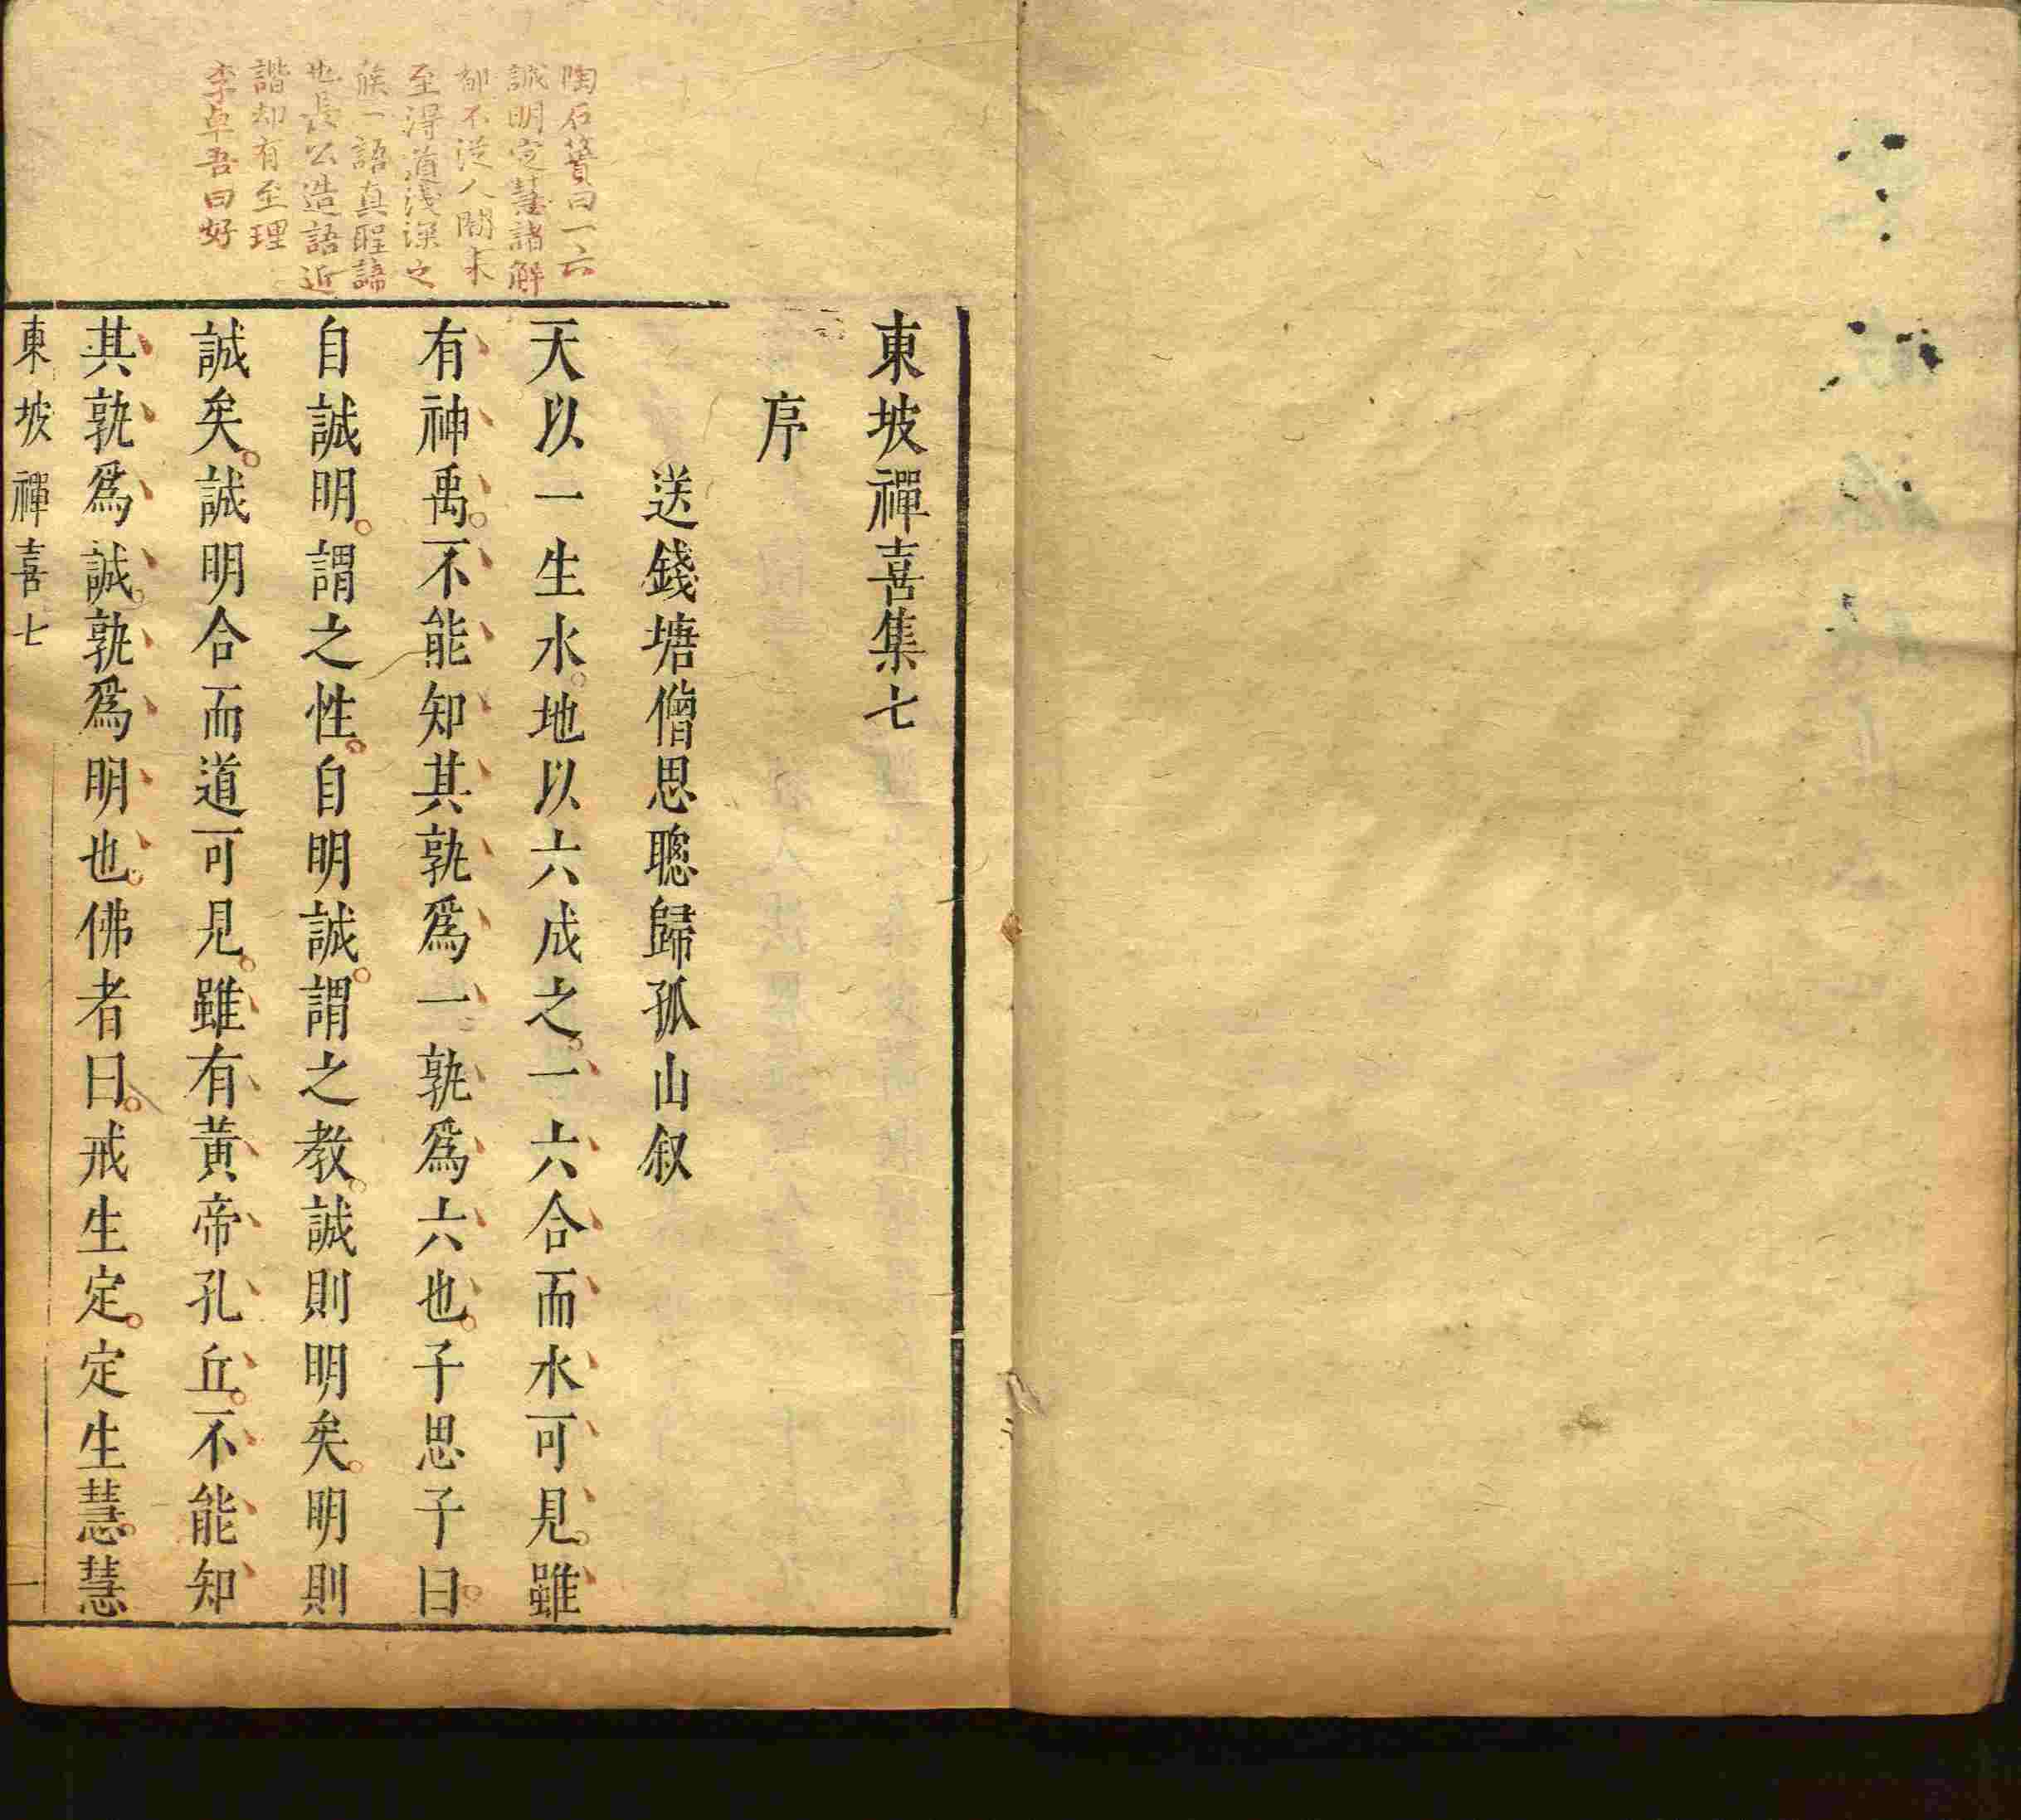 東坡禪喜集七
序
送錢塘僧思聰歸孤山叙
天以一生水。地以六成之。一六合而水可見。雖
有神禹。不能知其孰爲一孰爲六也。子思子曰。
自誠明。謂之性。自明誠。謂之教。誠則明矣。明則
誠矣。誠明合而道可見。雖有黃帝孔丘。不能知
其孰爲誠。孰爲明也。佛者曰。戒生定。定生慧。慧
東坡禪喜七
一
陶石簣曰一六
誠明定慧諸解
都不從人間來
至得道淺深之
候一語真醒諦
也長公造語近
諧却有至理
李卓吾曰好